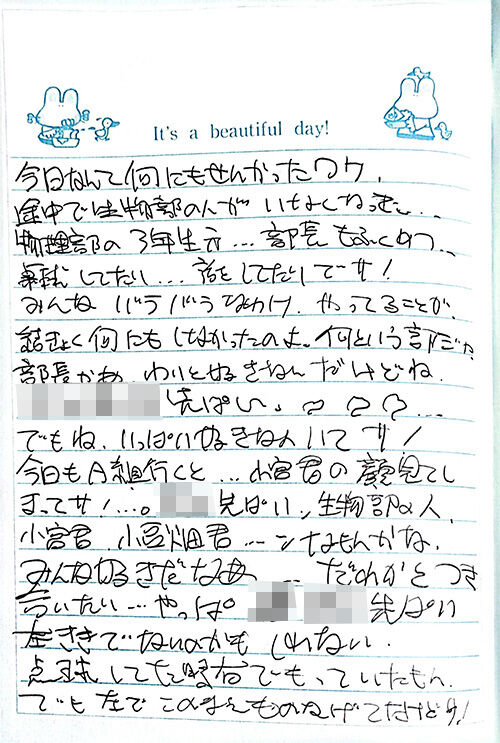 It's a beautiful day!
今日なんて何にもせんかったワケ、
途中で生物部の人がいなくなった…
物理部の3年生や…部長もふくめて、
してたい…話をしてたりです!
みんなバラバラなわけ、やってることが、
結きょく何にもしなかったのよ。何という部だか
部長かあ、わりと好きなんだけどね。
先ぱい。
でもね、いっぱい好きな人いてサ!
今日もA組行くと…小宮君の顔見てし
まってサ!…。先ぱい、生物部の人、
小宮君 小豆畑君…ンなもんかな。
みんな好きだなあ… だれかとつき
合いたい…やっぱ 先ぱい
左ききでないのかもしれない。
点球してた時右でもっていたもん。
でも左でこのまえものなげてたけどサ!